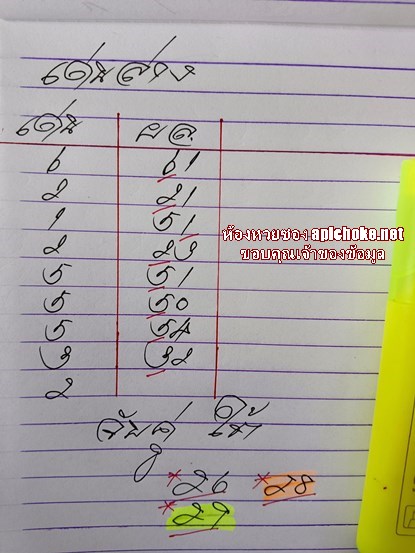 เด่นล่าง
เด่น ผล.
6 61
2 21
1 51
2 23
5 51
5 50
5 54
3 32
2
ห้องหวยซอง apichoke.net
ขอบคุณเจ้าของข้อมูล
จับคู่ ให้
*26 *28
*29